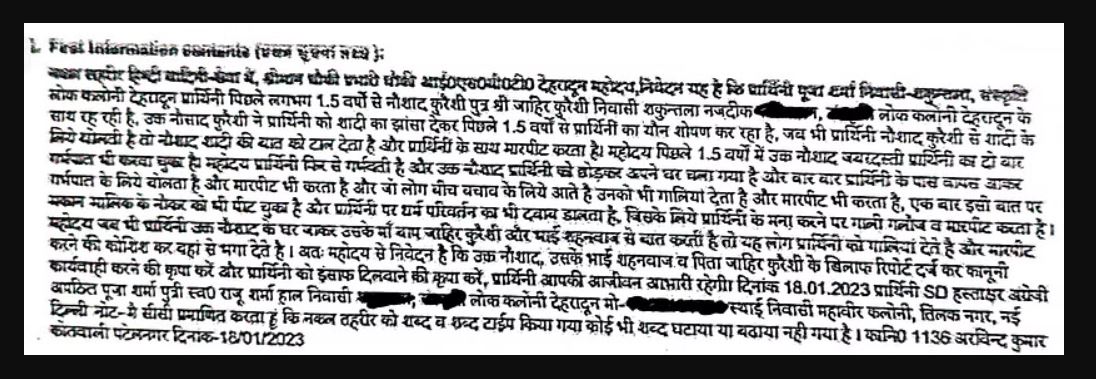 1. First Information contents (प्रथम सूचना तथ्य ):
नकल तहरीर हिन्दी वादिनी-सेवा में, श्रीमान चौकी प्रभारी चौकी आई०एस०बी०टी० देहरादून महोदय,निवेदन यह है कि प्रार्थिनी पूजा शर्मा निवासी-शकुन्तला, संस्कृति
लोक कलोनी देहरादून प्रार्थिनी पिछले लगभग 1.5 वर्षो से नौशाद कुरैशी पुत्र श्री जाहिर कुरैशी निवासी शकुन्तला नजदीक , लोक कलोनी देहरादून के
साथ रह रही है, उक्त नौसाद कुरैशी ने प्रार्थिनी को शादी का झांसा देकर पिछले 1.5 वर्षो से प्रार्थिनी का यौन शोषण कर रहा है, जब भी प्रार्थिनी नौशाद कुरैशी से शादी के
लिये बोलती है तो नौशाद शादी की बात को टाल देता है और प्रार्थिनी के साथ मारपीट करता है। महोदय पिछले 1.5 वर्षो में उक्त नौशाद जबरदस्ती प्रार्थिनी का दो बार
गर्भपात भी करवा चुका है। महोदय प्रार्थिनी फिर से गर्भवती है और उक्त नौशाद प्रार्थिनी को छोड़कर अपने घर चला गया है और बार बार प्रार्थिनी के पास वापस आकर
गर्भपात के लिये बोलता है और मारपीट भी करता है और जो लोग बीच बचाव के लिये आते है उनको भी गालियां देता है और मारपीट भी करता है, एक बार इसी बात पर
मकान मालिक के नौकर को भी पीट चुका है और प्रार्थिनी पर धर्म परिवर्तन का भी दबाव डालता है, जिसके लिये प्रार्थिनी के मना करने पर गाली गलौज व मारपीट करता है।
महोदय जब भी प्रार्थिनी उक्त नौशाद के घर जाकर उसके माँ बाप जाहिर कुरैशी और भाई शहनवाज से बात करती है तो यह लोग प्रार्थिनी को गालियां देते है और मारपीट
करने की कोशिश कर वहां से भगा देते है । अतः महोदय से निवेदन है कि उक्त नौशाद, उसके भाई शहनवाज व पिता जाहिर कुरैशी के खिलाफ रिपोर्ट दर्ज कर कानूनी
कार्यवाही करने की कृपा करें और प्रार्थिनी को इंसाफ दिलवाने की कृपा करें, प्रार्थिनी आपकी आजीवन आभारी रहेगी। दिनांक 18.01.2023 प्रार्थिनी SD हस्ताक्षर अंग्रेजी
अपठित पूजा शर्मा पुत्री स्व० राजू शर्मा हाल निवासी , लोक कलोनी देहरादून मो- स्थाई निवासी महावीर कलोनी, तिलक नगर, नई
दिल्ली नोट-मै सीसी प्रमाणित करता हूं कि नकल तहरीर को शब्द व शब्द टाईप किया गया कोई भी शब्द घटाया या बढाया नही गया है । कानि० 1136 अरविन्द कुमार
कोतवाली पटेलनगर दिनांक-18/01/2023